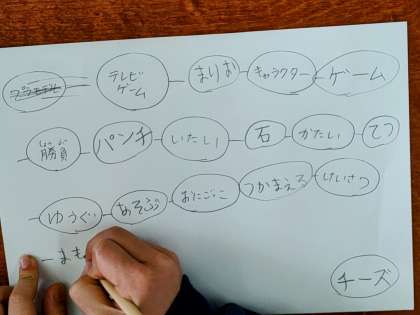 テレビゲーム まりお キャラクター ゲーム
しょうぶ 勝負 パンチ いたい 石 かたい てつ
ゆうぐ あそぶ おにごっこ つかまえる けいさつ
まも
チーズ